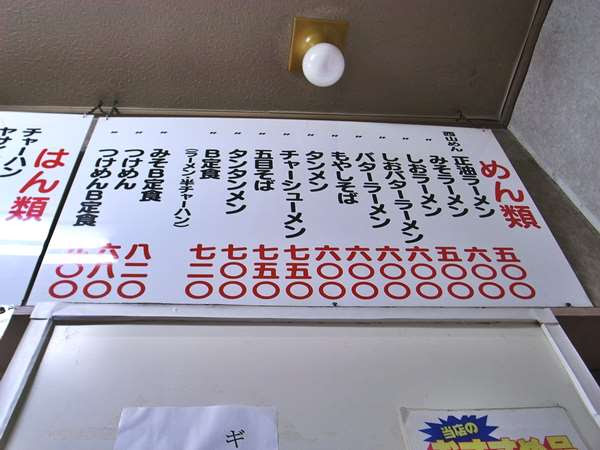 めん類
西山めん 正油ラーメン 五〇〇
〃 みそラーメン 六〇〇
〃 しおラーメン 五〇〇
〃 しおバターラーメン 六〇〇
〃 バターラーメン 六〇〇
〃 もやしそば 六〇〇
〃 タンメン 六〇〇
〃 チャーシューメン 七五〇
〃 五目そば 七五〇
〃 タンタンメン 七〇〇
〃 B定食 七二〇
(ラーメン・半チャーハン)
〃 みそB定食 八二〇
〃 つけめん 六八〇
〃 つけめんB定食 〇〇
はん類
チャーハン
ヤサ
ギ
当店の